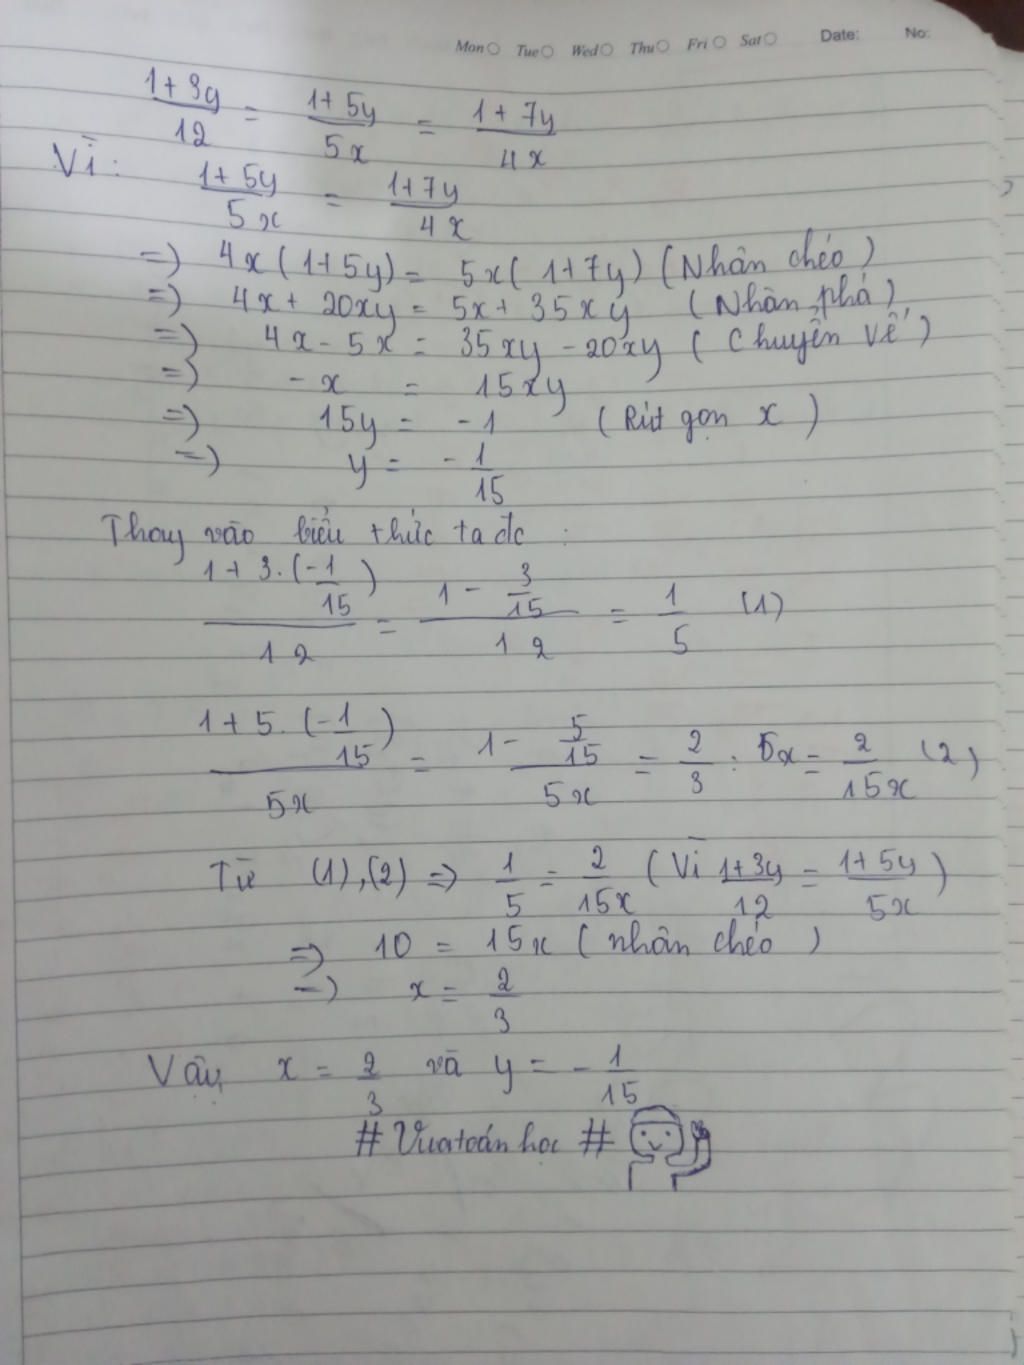 Mon Tue Wed Thu Fri Sat Date: No:
(1+3y)/12 = (1+5y)/5x = (1+7y)/4x
Vì: (1+5y)/5x = (1+7y)/4x
=) 4x(1+5y) = 5x(1+7y) (Nhân chéo)
=) 4x + 20xy = 5x + 35xy (Nhân phá)
=) 4x - 5x = 35xy - 20xy (Chuyển vế)
=) -x = 15xy
=) 15y = -1 (Rút gọn x)
=) y = -1/15
Thay vào biểu thức ta đc :
(1 + 3.(-1/15))/12 = (1 - 3/15)/12 = 1/5 (1)
(1 + 5.(-1/15))/5x = (1 - 5/15)/5x = 2/3 : 5x = 2/15x (2)
Từ (1),(2) => 1/5 = 2/15x (Vì (1+3y)/12 = (1+5y)/5x)
=> 10 = 15x (nhân chéo)
=) x = 2/3
Vậy x = 2/3 và y = -1/15
# Vuatoánhọc #